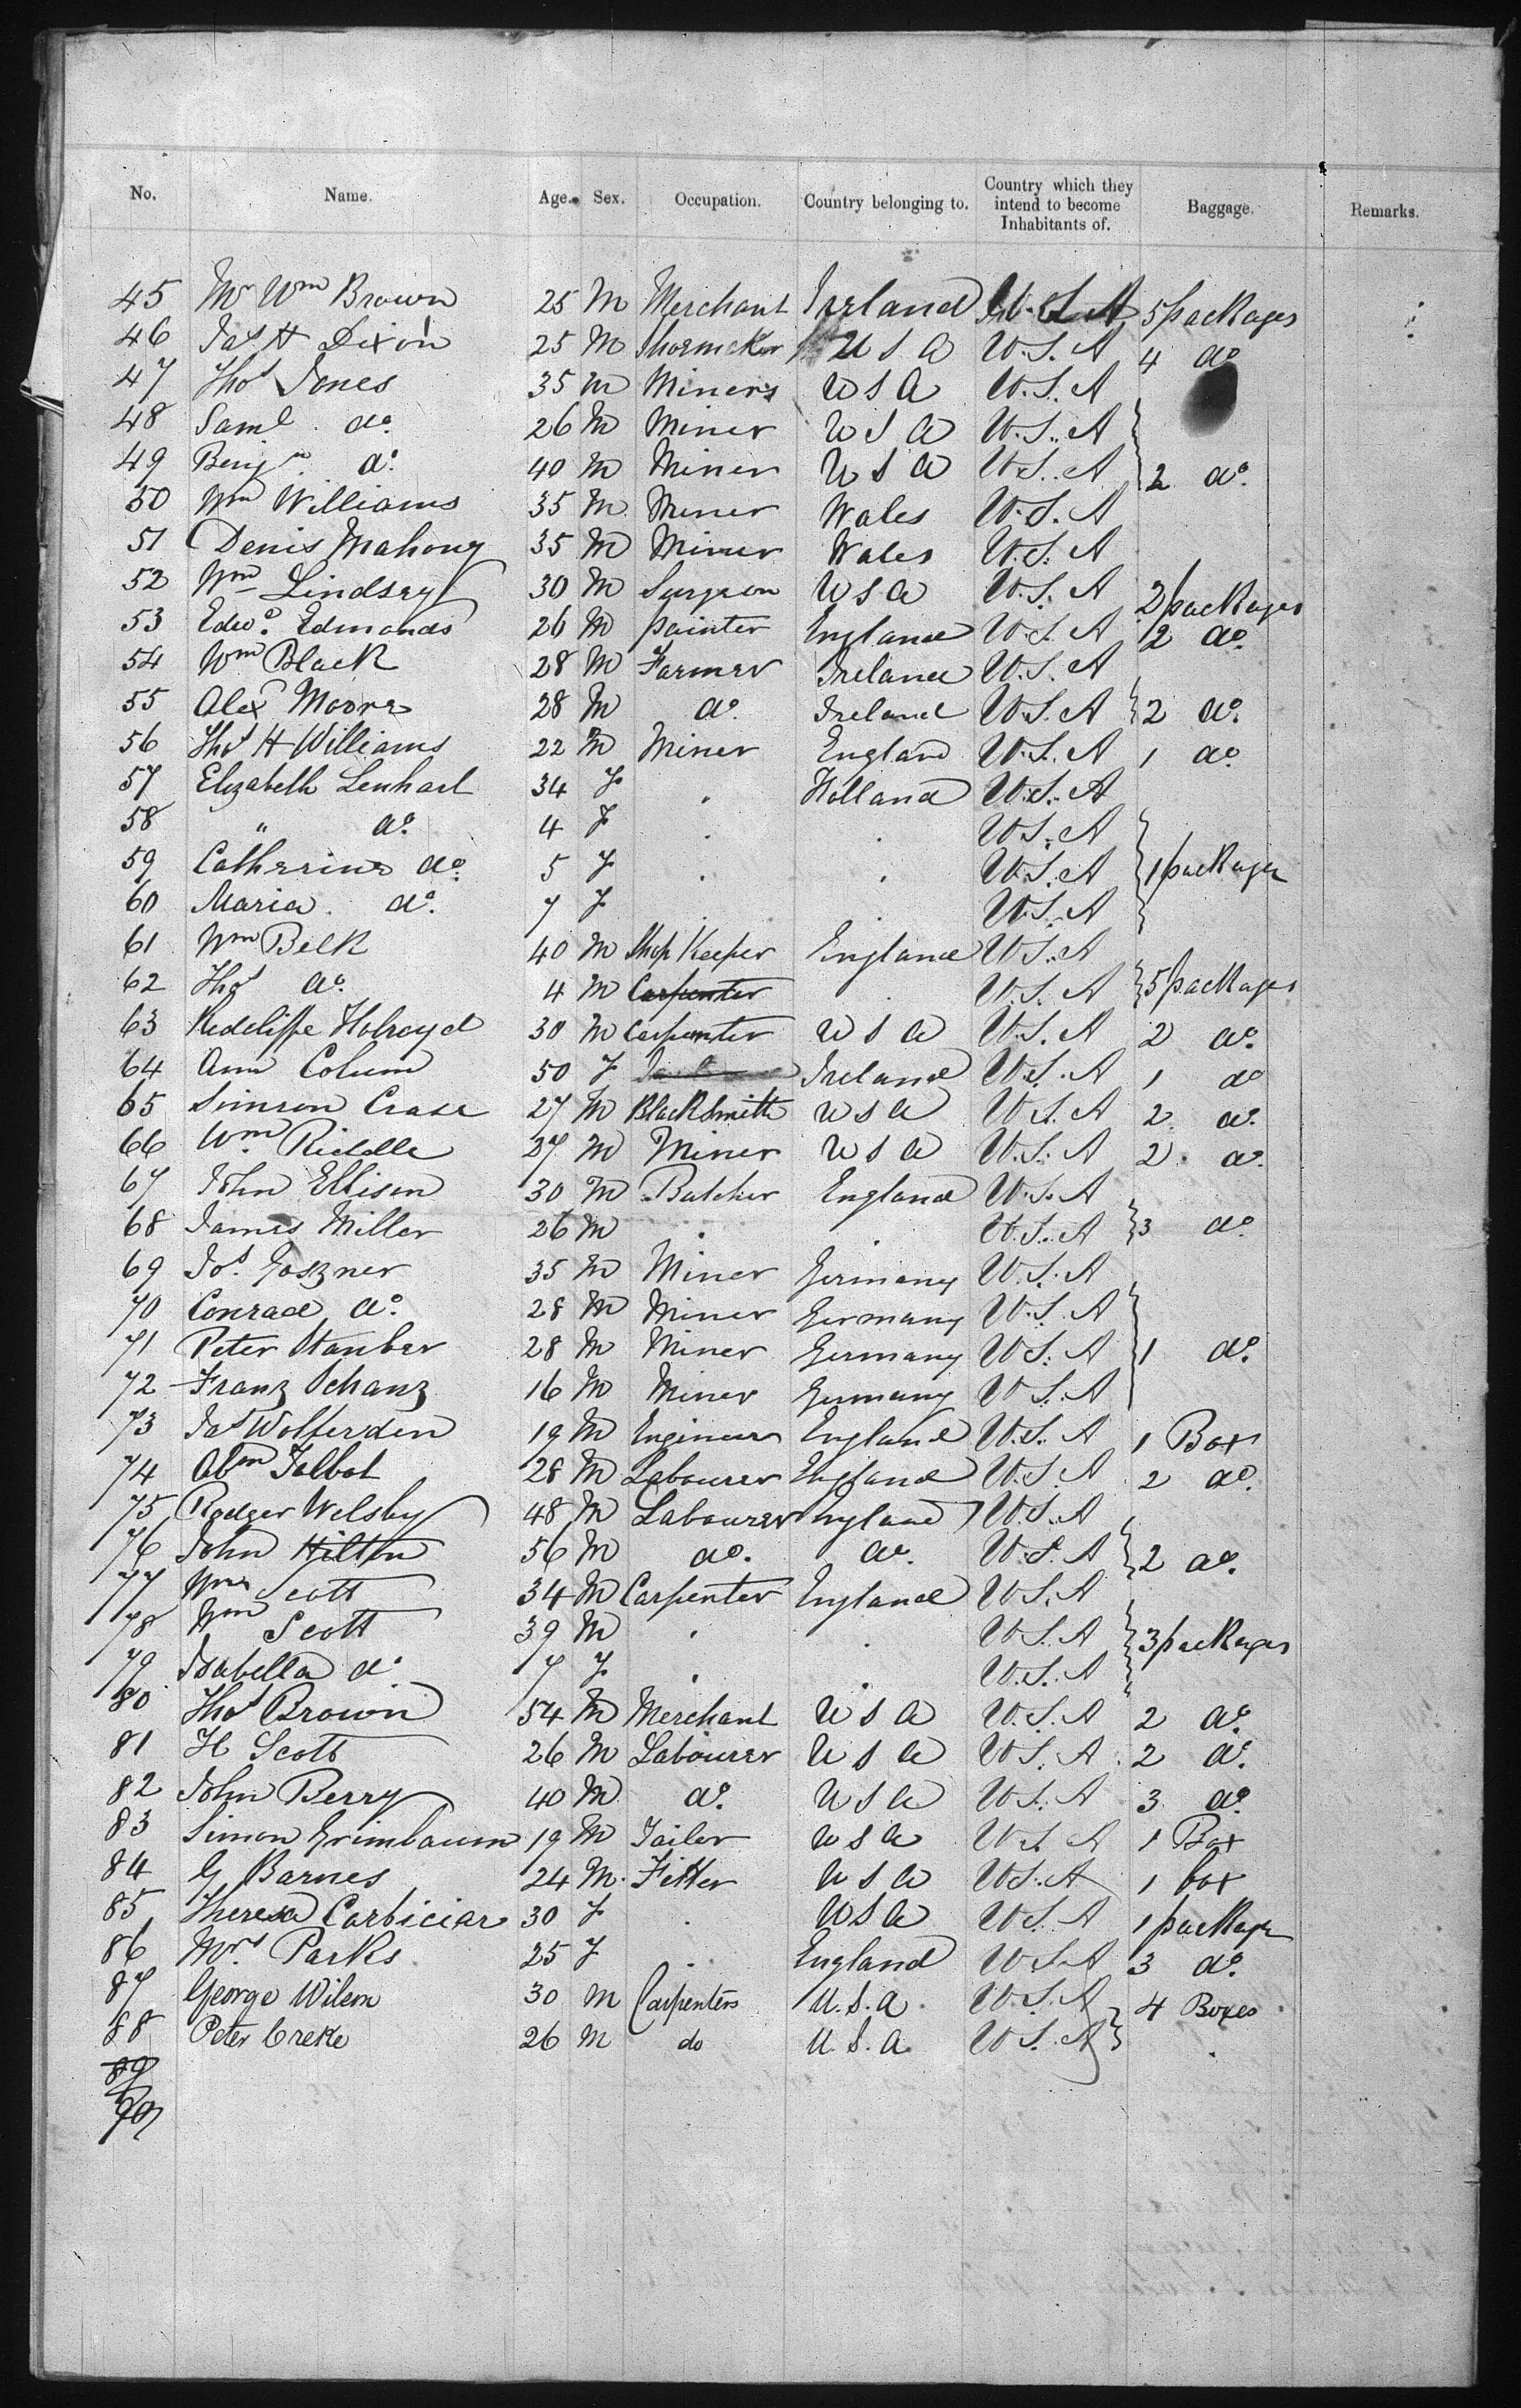 No. Name. Age. Sex. Occupation. Country belonging to. Country which they intend to become Inhabitants of. Baggage. Remarks.
45 Mr Wm Brown 25 M Merchant Ireland U.S.A 5 packages
46 Jas H Dixon 25 M Shoemaker U S A U.S.A 4 do
47 Thos Jones 35 M Miners U S A U.S.A
48 Saml. do. 26 M Miner U S A U.S.A
49 Benjn. do. 40 M Miner U S A U.S.A 2 do.
50 Wm Williams 35 M Miner Wales U.S.A
51 Denis Mahony 35 M Miner Wales U.S.A
52 Wm Lindsay 30 M Surgeon U S A U.S.A 2 packages
53 Edwd. Edmonds 26 M painter England U.S.A 2 do.
54 Wm Black 28 M Farmer Ireland U.S.A
55 Alex Moore 28 M do. Ireland U.S.A 2 do.
56 Thos H Williams 22 M Miner England U.S.A 1 do.
57 Elizabeth Lenhart 34 F Holland U.S.A
58 " do. 4 F U.S.A
59 Catherine do. 5 F U.S.A 1 package
60 Maria. do. 7 F U.S.A
61 Wm Belk 40 M Shop Keeper England U.S.A
62 Thos do. 4 M Carpenter U.S.A 5 packages
63 Redcliffe Holroyd 30 M Carpenter U S A U.S.A 2 do.
64 Ann Colum 50 F Ireland U.S.A 1 do
65 Simson Crase 27 M BlackSmith U S A U.S.A 2 do.
66 Wm. Riddle 27 M Miner U S A U.S.A 2 do.
67 John Ellison 30 M Butcher England U.S.A
68 James Miller 26 M U.S.A 3 do.
69 Jos. Goszner 35 M Miner Germany U.S.A
70 Conrad do. 28 M Miner Germany U.S.A
71 Peter Stauber 28 M Miner Germany U.S.A 1 do.
72 Franz Schanz 16 M Miner Germany U.S.A
73 Jas Wolferden 19 M Engineer England U.S.A 1 Box
74 Abm Talbot 28 M Labourer England U.S.A 2 do.
75 Rodger Welsby 48 M Labourer England U.S.A
76 John Hilton 56 M do. do. U.S.A 2 do.
77 Wm Scott 34 M Carpenter England U.S.A
78 Wm Scott 39 M U.S.A 3 packages
79 Isabella do 7 F U.S.A
80 Thos Brown 54 M Merchant U S A U.S.A 2 do.
81 H Scott 26 M Labourer U S A U.S.A 2 do.
82 John Berry 40 M do. U S A U.S.A 3 do.
83 Simon Grimbaum 19 M Tailor U S A U.S.A 1 Box
84 G Barnes 24 M. Fitter U S A U.S.A 1 box
85 Theresa Corbiciar 30 F U S A U.S.A 1 package
86 Mrs. Parks 25 F England U.S.A 3 do.
87 George Wilson 30 M Carpenters U.S.A. U.S.A 4 Boxes
88 Peter Creke 26 M do U.S.A. U.S.A
89
90